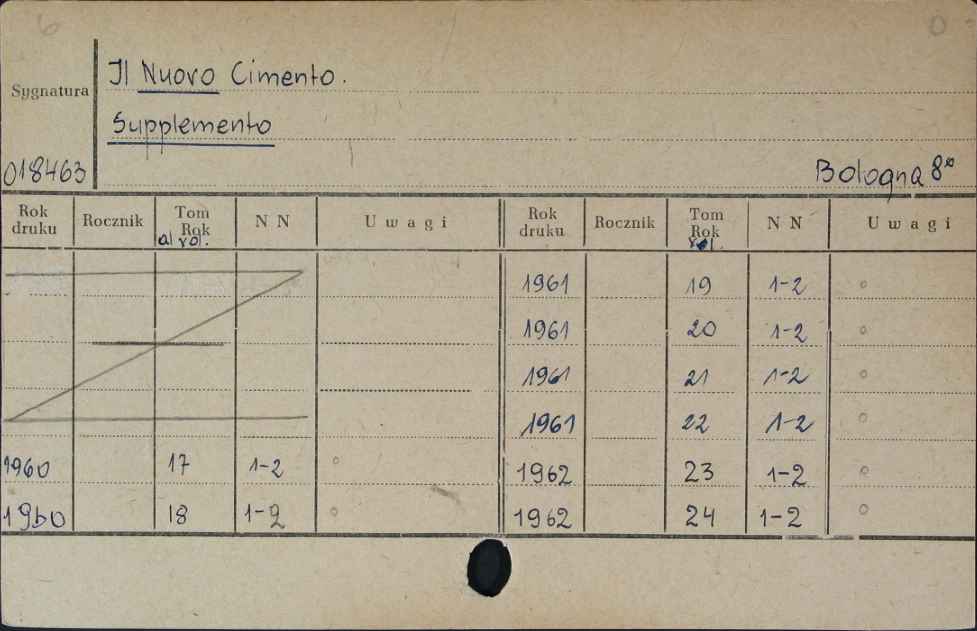 6 0
Il Nuovo Cimento.
Sygnatura
Supplemento
018463 Bologna 8°
Rok druku Rocznik Tom Rok vol. N N Uwagi Rok druku Rocznik Tom Rok vol. N N Uwagi
1961 19 1-2 °
1961 20 1-2 °
1961 21 1-2 °
1961 22 1-2 °
1960 17 1-2 ° 1962 23 1-2 °
1960 18 1-2 ° 1962 24 1-2 °